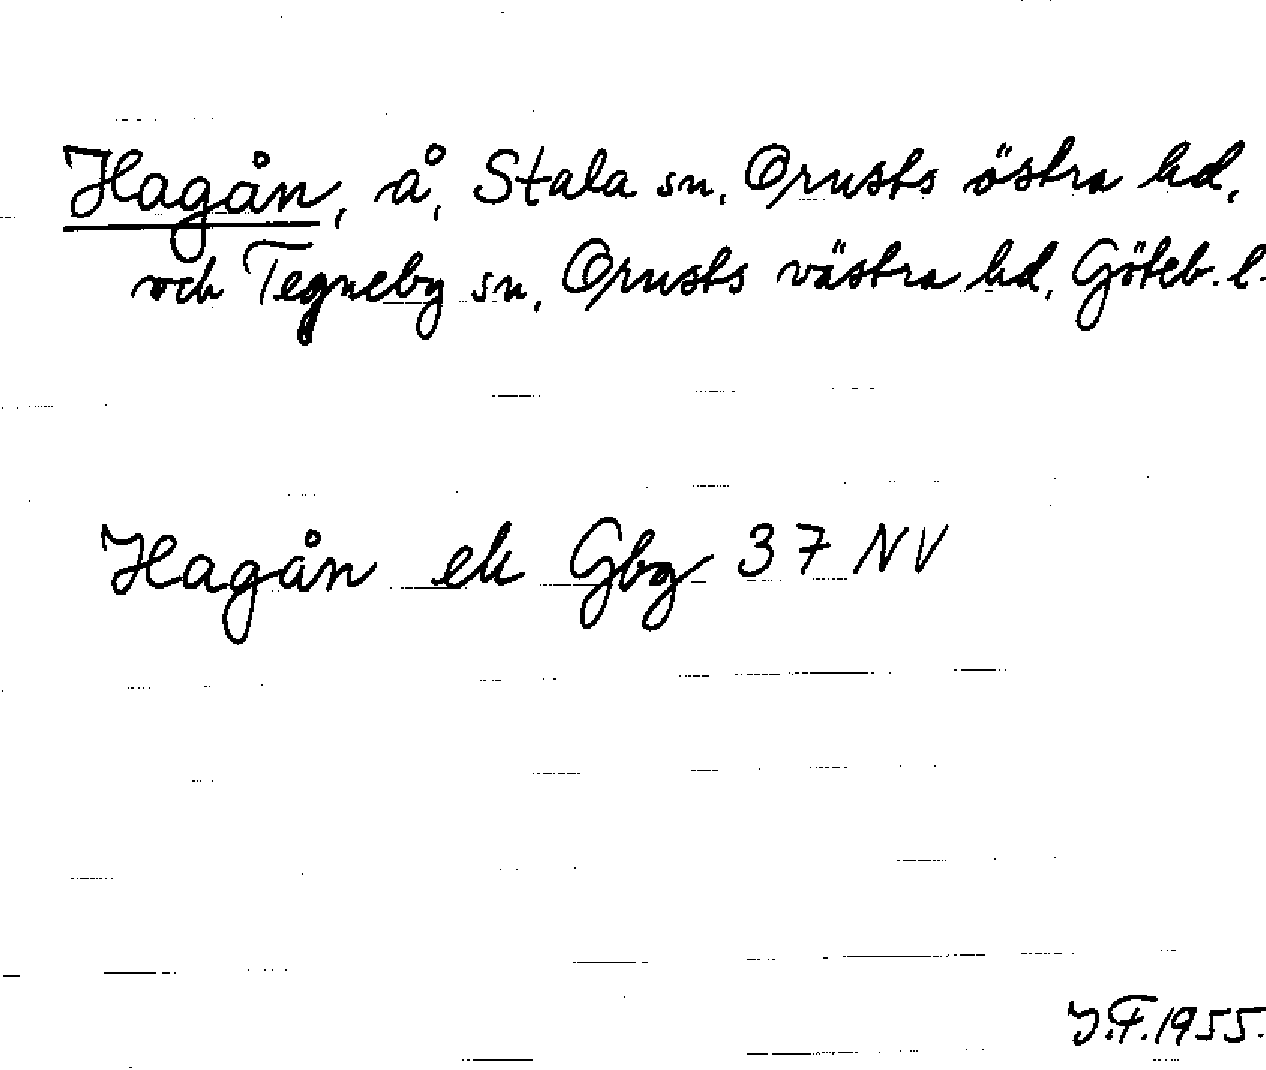 Hagån, å, Stala sn, Orusts östra hd,
och Tegneby sn, Orusts västra hd, Göteb. l.
Hagån ek Gbg 37 NV
J.F. 1955.